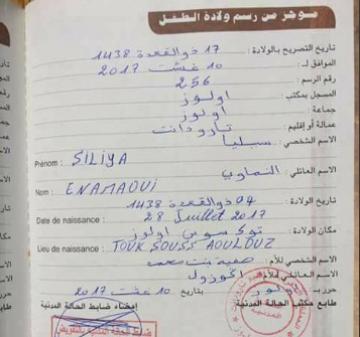 موجز من رسم ولادة الطفل
تاريخ التصريح بالولادة : 17 ذو القعدة 1438
الموافق لـ : 10 غشت 2017
رقم الرسم : 256
المسجل بمكتب : اولوز
جماعة : اولوز
عمالة أو إقليم : تارودانت
الاسم الشخصي : سيليا
Prénom : SILIYA
الاسم العائلي : النماوي
Nom : ENAMAOUI
تاريخ الولادة : 04 ذو القعدة 1438
Date de naissance : 28 Juillet 2017
مكان الولادة : توك سوس اولوز
Lieu de naissance : TOUK SOUSS AOULOUZ
الاسم الشخصي للأم : صفية بنت محمد
الاسم العائلي للأم : اكوزول
حرر بـ اولوز بتاريخ 10 غشت 2017
طابع مكتب الحالة المدنية إمضاء ضابط الحالة المدنية